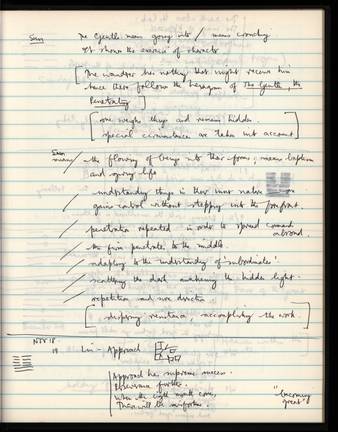 Sun The Gentle means going into / means crouching
It shows the exercise of character
[ The wanderer has nothing that might receive him
hence there follows the hexagram of The Gentle, the
Penetrating ]
[ one weighs things and remains hidden.
special circumstances are taken into account ]
Sun means / the flowing of beings into their forms; means baptism
and giving life
/ understanding things in their inner nature
gains control without stepping into the foreground.
/ penetration repeated in order to spread commands
abroad.
/ the firm penetrates to the middle.
/ adapting to the understanding of 'subordinates'.
/ scattering the dark awakening the hidden light.
/ repetition and more direction
[ dispersing resistance, accomplishing the work. ]
Nov 18
19 Lin - Approach
Approach has supreme success.
Perseverance furthers.
When the eighth month comes,
There will be misfortune.
"becoming
great"